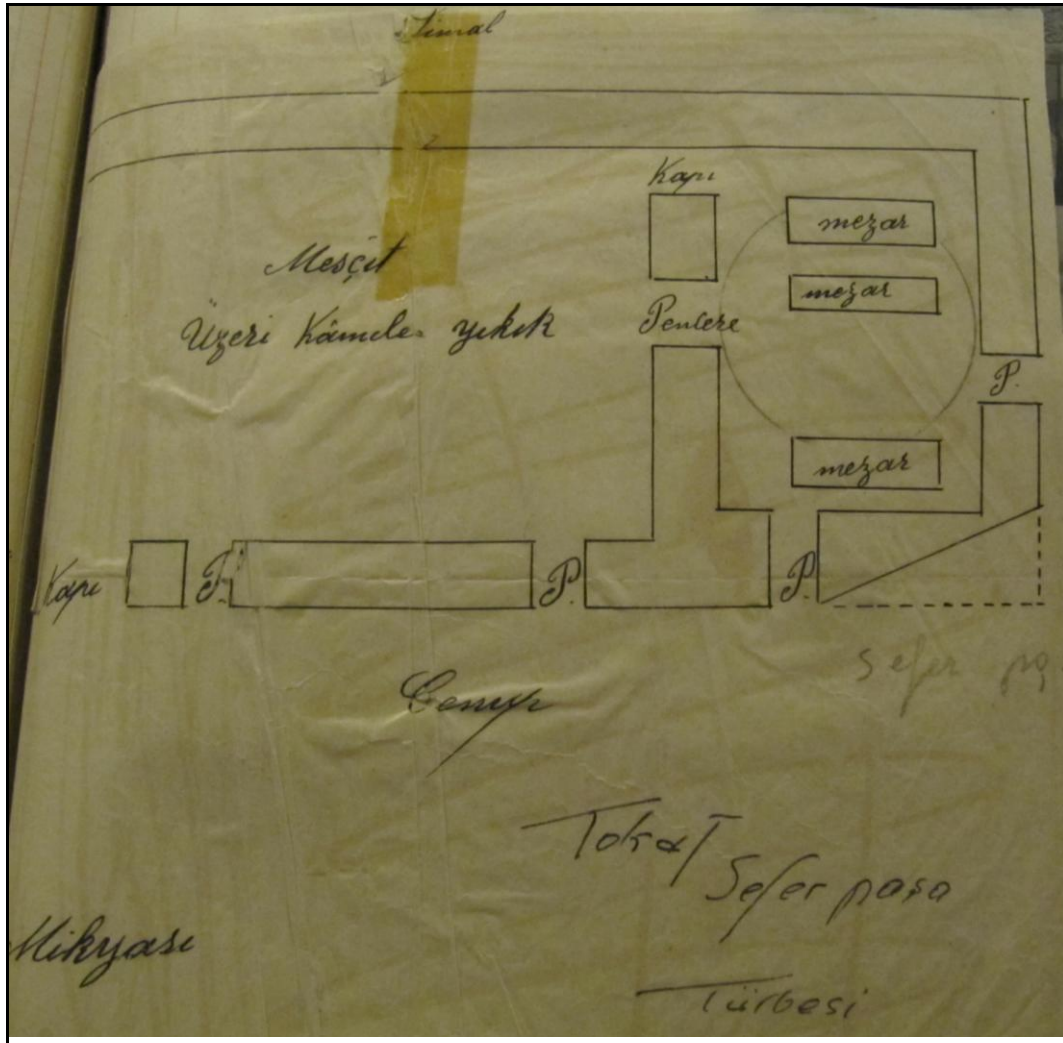 Şimal
Kapı
mezar
mezar
Mesçit
Üzeri Kâmile yıkık
Pencere
P.
mezar
Kapı
P.
P.
P.
Sefer pş
Cenup
Tokat
Sefer paşa
Mikyası
Türbesi